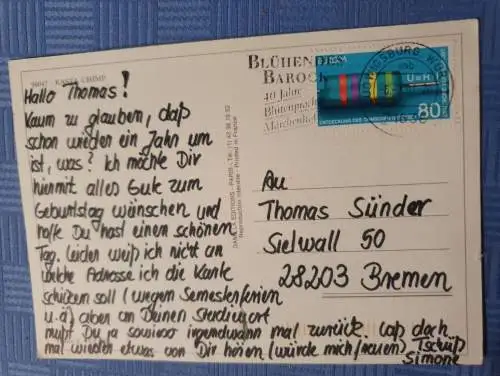 98047 - RASTA CHIMP
Hallo Thomas!
Kaum zu glauben, daß
schon wieder ein Jahn um
ist, was? Ich möchte Dir
hiermit alles Gute zum
Geburtstag wünschen und
hoffe Du hast einen schönen
Tag. Leider weiß ich nicht an
welche Adresse ich die Karte
schicken soll (wegen Semesterferien
u.ä) aber an Deinen Studienort
mußt Du ja sowieso irgendwann mal zurück. Laß doch
mal wieder etwas von Dir hören (würde mich freuen) Tschüß
Simone
EDITIONS - PARIS - Tél.
Reproduction interdite - Printed in France
BLÜHENDES
BAROCK
40 Jahre
Blütenpracht
Märchen
LUDWIGSBURG
U=R·I
80
An
Thomas Sünder
Sielwall 50
28203 Bremen